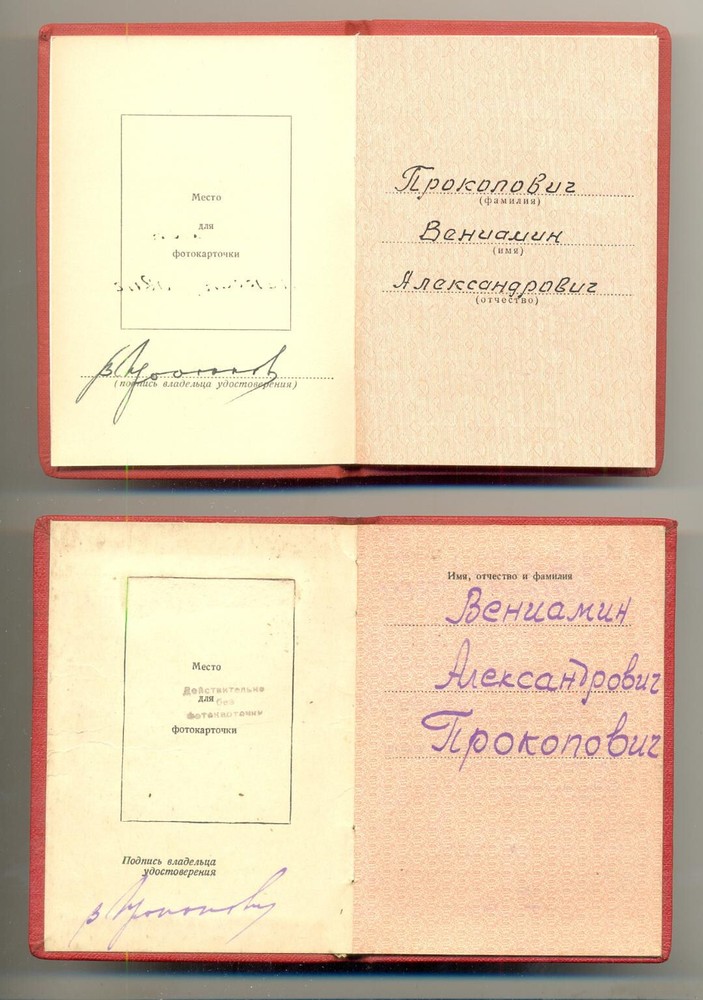 Место
для
фотокарточки
(подпись владельца удостоверения)
Прокопович
(фамилия)
Вениамин
(имя)
Александрович
(отчество)
Место
Действительно
для
без
фотокарточки
фотокарточки
Подпись владельца
удостоверения
Имя, отчество и фамилия
Вениамин
Александрович
Прокопович